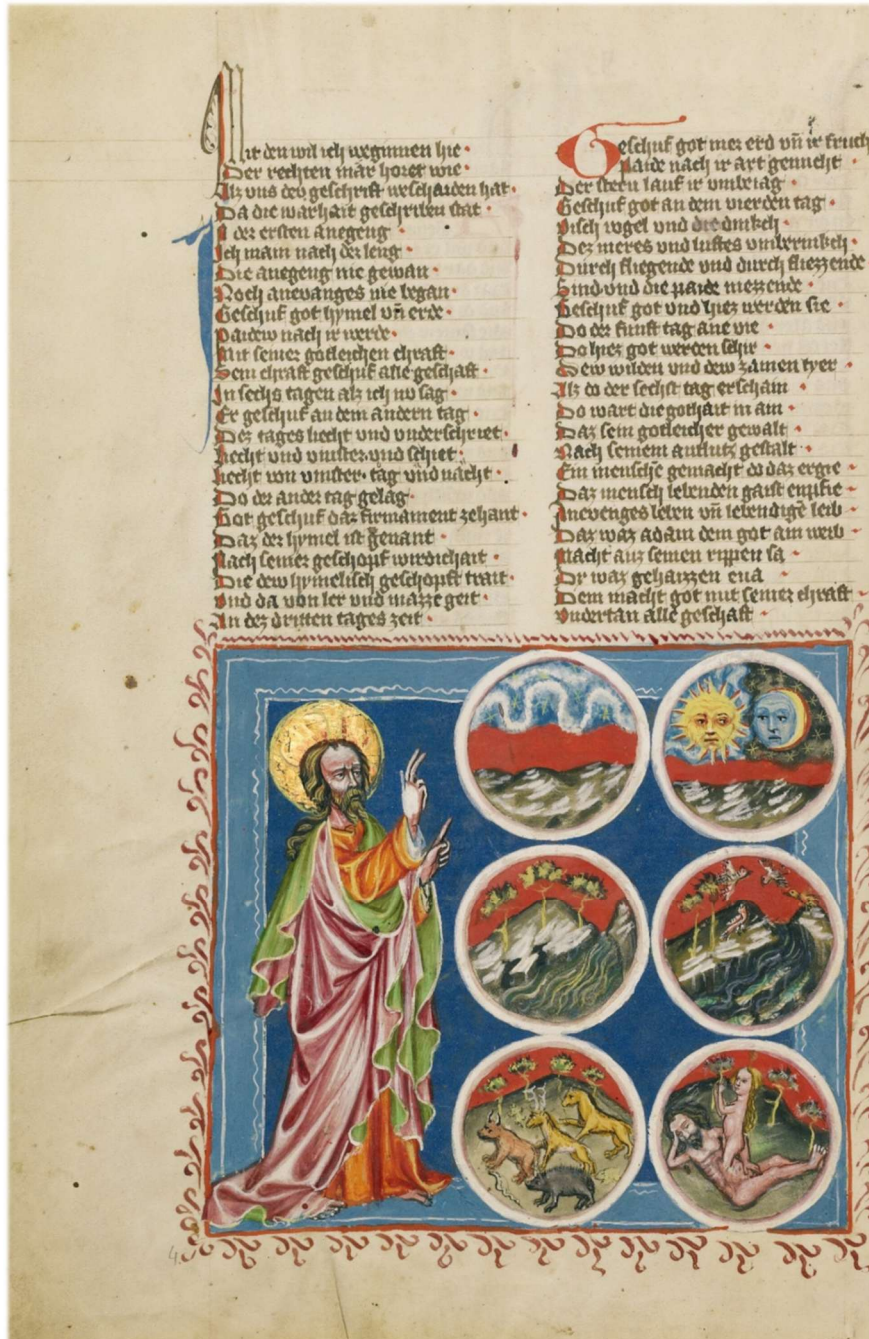 Mit den wil ich weginnen hie ·
Der rechten mär horet wie ·
Alz vns deu geschrift weschaiden hat ·
Da die warhait geschriben stat ·
In der ersten anegeng ·
Ich main nach der leng ·
Die anegeng nie gewan ·
Noch anevanges nie began ·
Geschuf got hymel vñ erde ·
Paidew nach ir werde ·
Mit seiner gotleichen chraft ·
Sein chraft geschuf alle geschaft ·
In sechs tagen alz ich nv sag ·
Er geschuf an dem andern tag ·
Dez tages liecht vnd vnderschriet ·
Liecht vnd vinster vnd schiet ·
Liecht von vinster · tag vnd nacht ·
Do der ander tag gelag ·
Got geschuf daz firmament zehant ·
Daz der hymel ist genant ·
Nach seiner geschopf wirdichait ·
Die dew hymelisch geschopft trait ·
Vnd da von ler vnd mazze geit ·
An dez dritten tages zeit ·
Geschuf got mer erd vñ ir fruch
Paide nach ir art genucht ·
Der stern lauf ir vmbeiag ·
Geschuf got an dem vierden tag ·
Visch vogel vnd die
Dez meres vnd luftes
Durch fliegende vnd durch fliezzende
Sind vnd die paide mezzende ·
Geschuf got vnd hiez werden sie ·
Do der funft tag ane vie ·
Do hiez got werden schir ·
Dew wilden vnd dew zamen tyer ·
Alz do der sechst tag erschain ·
Do wart die gothait in ain ·
Daz sein gotleicher gewalt ·
Nach seinem antlutz gestalt ·
Ein mensche gemacht do daz ergie ·
Daz mensch lebenden gaist enpfie ·
Anevenges leben vñ lebendigē leib ·
Daz waz adam dem got ain weib ·
Macht auz seinen rippen sa ·
Dr waz gehaizzen eua ·
Dem macht got mit seiner chraft ·
Vndertan alle geschaft ·